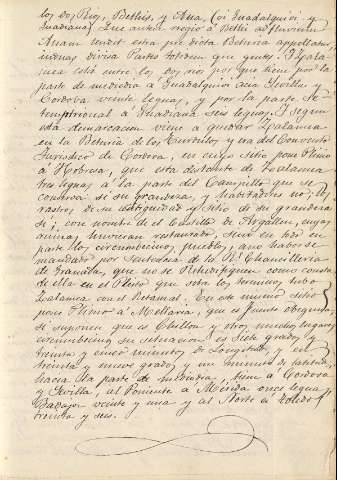 los dos Rios, Bethis, y Ana, (oi Guadalquivir y
Guadiana) que autem regio á Bethi ad fluvium
Anam tendit extra prædicta Beturia appellatur
in duas divisa Partes totidem que gentes. Zala-
mea está entre los dos rios por que tiene por la
parte de mediodia á Guadalquivir acia Sevilla y
Cordova veinte leguas, y por la parte Se-
temptrional á Guadiana seis leguas. I segun
esta demarcacion viene a quedar Zalamea
en la Beturia de los Turdulos y era del Convento
Jurídico de Cordova, en cuyo sitio pone Plinio
á Mobrosa, que esta distante de Zalamea
tres leguas á la parte del Campillo que se
conserva si su grandeza, y habitadores no: el
rastro de su antiguedad y sitio de su grandeza
si; con nombre de el Castillo de Argallen, cuyas
ruinas hubieran restaurado, sino en todo en
parte los circumbecinos pueblos, a no haberse
mandado por Sentencia de la Rl. Chancilleria
de Granada, que no se Rehedifiquen como consta
de ella en el Pleito que sobre los terminos tubo
Zalamea con el Retamal. En este mismo sitio
pone Plinio á Mellaria, que es fuente obejuna,
se suponen que es Chillon y otros muchos lugares
circumbecinos su situacion es Siete grados y
treinta y cinco minutos de Longitud, y en
treinta y nueve grados y un minuto de latitud,
hacia la parte de mediodia, tiene á Cordova
y Sevilla, al Poniente á Mérida once leguas
Badajoz veinte y una y al Norte á Toledo
treinta y seis.